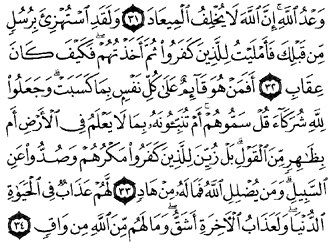 وَعْدُ ٱللَّهِ إِنَّ ٱللَّهَ لَا يُخْلِفُ ٱلْمِيعَادَ ٣١ وَلَقَدِ ٱسْتُهْزِئَ بِرُسُلٍ
مِّن قَبْلِكَ فَأَمْلَيْتُ لِلَّذِينَ كَفَرُوا۟ ثُمَّ أَخَذْتُهُمْ فَكَيْفَ كَانَ
عِقَابِ ٣٢ أَفَمَنْ هُوَ قَآئِمٌ عَلَىٰ كُلِّ نَفْسٍۭ بِمَا كَسَبَتْ وَجَعَلُوا۟
لِلَّهِ شُرَكَآءَ قُلْ سَمُّوهُمْ أَمْ تُنَبِّـُٔونَهُۥ بِمَا لَا يَعْلَمُ فِى ٱلْأَرْضِ أَم
بِظَـٰهِرٍ مِّنَ ٱلْقَوْلِ بَلْ زُيِّنَ لِلَّذِينَ كَفَرُوا۟ مَكْرُهُمْ وَصُدُّوا۟ عَنِ
ٱلسَّبِيلِ وَمَن يُضْلِلِ ٱللَّهُ فَمَا لَهُۥ مِنْ هَادٍ ٣٣ لَّهُمْ عَذَابٌ فِى ٱلْحَيَوٰةِ
ٱلدُّنْيَا وَلَعَذَابُ ٱلْـَٔاخِرَةِ أَشَقُّ وَمَا لَهُم مِّنَ ٱللَّهِ مِن وَاقٍ ٣٤